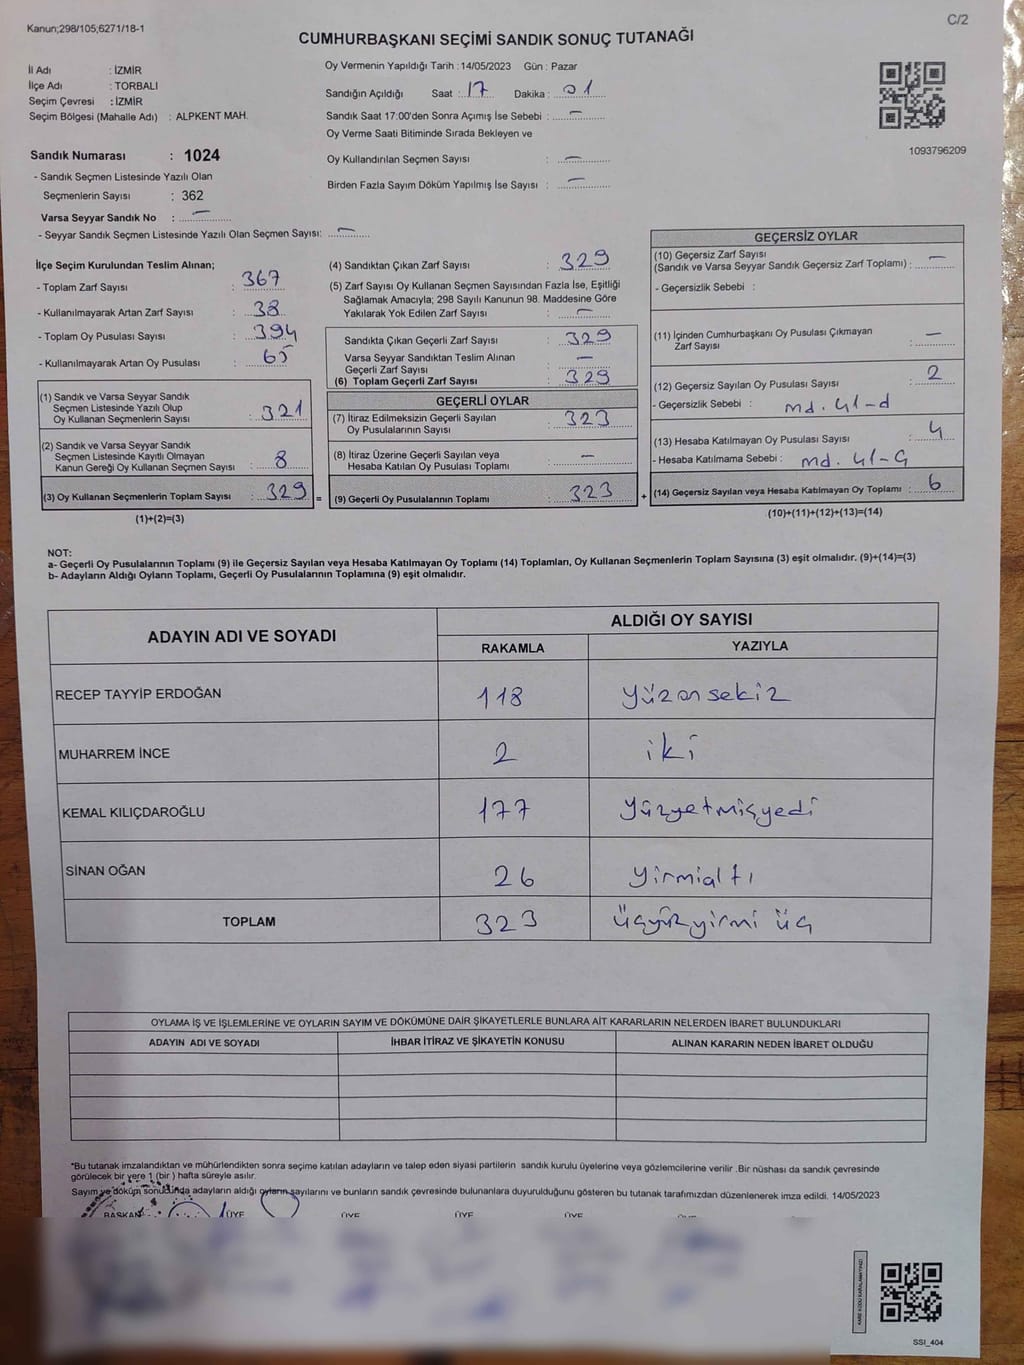 Kanun;298/105;6271/18-1
C/2
CUMHURBAŞKANI SEÇİMİ SANDIK SONUÇ TUTANAĞI
İl Adı : İZMİR
İlçe Adı : TORBALI
Seçim Çevresi : İZMİR
Seçim Bölgesi (Mahalle Adı) : ALPKENT MAH.
Sandık Numarası : 1024
- Sandık Seçmen Listesinde Yazılı Olan
Seçmenlerin Sayısı : 362
Varsa Seyyar Sandık No : —
- Seyyar Sandık Seçmen Listesinde Yazılı Olan Seçmen Sayısı: —
Oy Vermenin Yapıldığı Tarih : 14/05/2023 Gün : Pazar
Sandığın Açıldığı Saat : 17 Dakika : 01
Sandık Saat 17:00'den Sonra Açımış İse Sebebi : —
Oy Verme Saati Bitiminde Sırada Bekleyen ve
Oy Kullandırılan Seçmen Sayısı : —
Birden Fazla Sayım Döküm Yapılmış İse Sayısı : —
1093796209
İlçe Seçim Kurulundan Teslim Alınan;
- Toplam Zarf Sayısı : 367
- Kullanılmayarak Artan Zarf Sayısı : 38
- Toplam Oy Pusulası Sayısı : 394
- Kullanılmayarak Artan Oy Pusulası : 65
(1) Sandık ve Varsa Seyyar Sandık
Seçmen Listesinde Yazılı Olup
Oy Kullanan Seçmenlerin Sayısı : 321
(2) Sandık ve Varsa Seyyar Sandık
Seçmen Listesinde Kayıtlı Olmayan
Kanun Gereği Oy Kullanan Seçmen Sayısı : 8
(3) Oy Kullanan Seçmenlerin Toplam Sayısı : 329 =
(1)+(2)=(3)
(4) Sandıktan Çıkan Zarf Sayısı : 329
(5) Zarf Sayısı Oy Kullanan Seçmen Sayısından Fazla İse, Eşitliği
Sağlamak Amacıyla; 298 Sayılı Kanunun 98. Maddesine Göre
Yakılarak Yok Edilen Zarf Sayısı : —
Sandıkta Çıkan Geçerli Zarf Sayısı : 329
Varsa Seyyar Sandıktan Teslim Alınan
Geçerli Zarf Sayısı : —
(6) Toplam Geçerli Zarf Sayısı : 329
GEÇERLİ OYLAR
(7) İtiraz Edilmeksizin Geçerli Sayılan
Oy Pusulalarının Sayısı : 323
(8) İtiraz Üzerine Geçerli Sayılan veya
Hesaba Katılan Oy Pusulası Toplamı : —
(9) Geçerli Oy Pusulalarının Toplamı : 323 +
GEÇERSİZ OYLAR
(10) Geçersiz Zarf Sayısı
(Sandık ve Varsa Seyyar Sandık Geçersiz Zarf Toplamı) : —
- Geçersizlik Sebebi :
(11) İçinden Cumhurbaşkanı Oy Pusulası Çıkmayan
Zarf Sayısı : —
(12) Geçersiz Sayılan Oy Pusulası Sayısı : 2
- Geçersizlik Sebebi : md. 41-d
(13) Hesaba Katılmayan Oy Pusulası Sayısı : 4
- Hesaba Katılmama Sebebi : md. 41-Ç
(14) Geçersiz Sayılan veya Hesaba Katılmayan Oy Toplamı : 6
(10)+(11)+(12)+(13)=(14)
NOT:
a- Geçerli Oy Pusulalarının Toplamı (9) ile Geçersiz Sayılan veya Hesaba Katılmayan Oy Toplamı (14) Toplamları, Oy Kullanan Seçmenlerin Toplam Sayısına (3) eşit olmalıdır. (9)+(14)=(3)
b- Adayların Aldığı Oyların Toplamı, Geçerli Oy Pusulalarının Toplamına (9) eşit olmalıdır.
ADAYIN ADI VE SOYADI
ALDIĞI OY SAYISI
RAKAMLA YAZIYLA
RECEP TAYYİP ERDOĞAN 118 yüzonsekiz
MUHARREM İNCE 2 iki
KEMAL KILIÇDAROĞLU 177 yüzyetmişyedi
SİNAN OĞAN 26 yirmialtı
TOPLAM 323 üçyüzyirmi üç
OYLAMA İŞ VE İŞLEMLERİNE VE OYLARIN SAYIM VE DÖKÜMÜNE DAİR ŞİKAYETLERLE BUNLARA AİT KARARLARIN NELERDEN İBARET BULUNDUKLARI
ADAYIN ADI VE SOYADI İHBAR İTİRAZ VE ŞİKAYETİN KONUSU ALINAN KARARIN NEDEN İBARET OLDUĞU
*Bu tutanak imzalandıktan ve mühürlendikten sonra seçime katılan adayların ve talep eden siyasi partilerin sandık kurulu üyelerine veya gözlemcilerine verilir .Bir nüshası da sandık çevresinde
görülecek bir yere 1 (bir ) hafta süreyle asılır.
Sayım ve döküm sonucunda adayların aldığı oyların sayılarını ve bunların sandık çevresinde bulunanlara duyurulduğunu gösteren bu tutanak tarafımızdan düzenlenerek imza edildi. 14/05/2023
BAŞKAN ÜYE ÜYE ÜYE ÜYE
KARE KODU KARALAMAYINIZ!
SSI_404